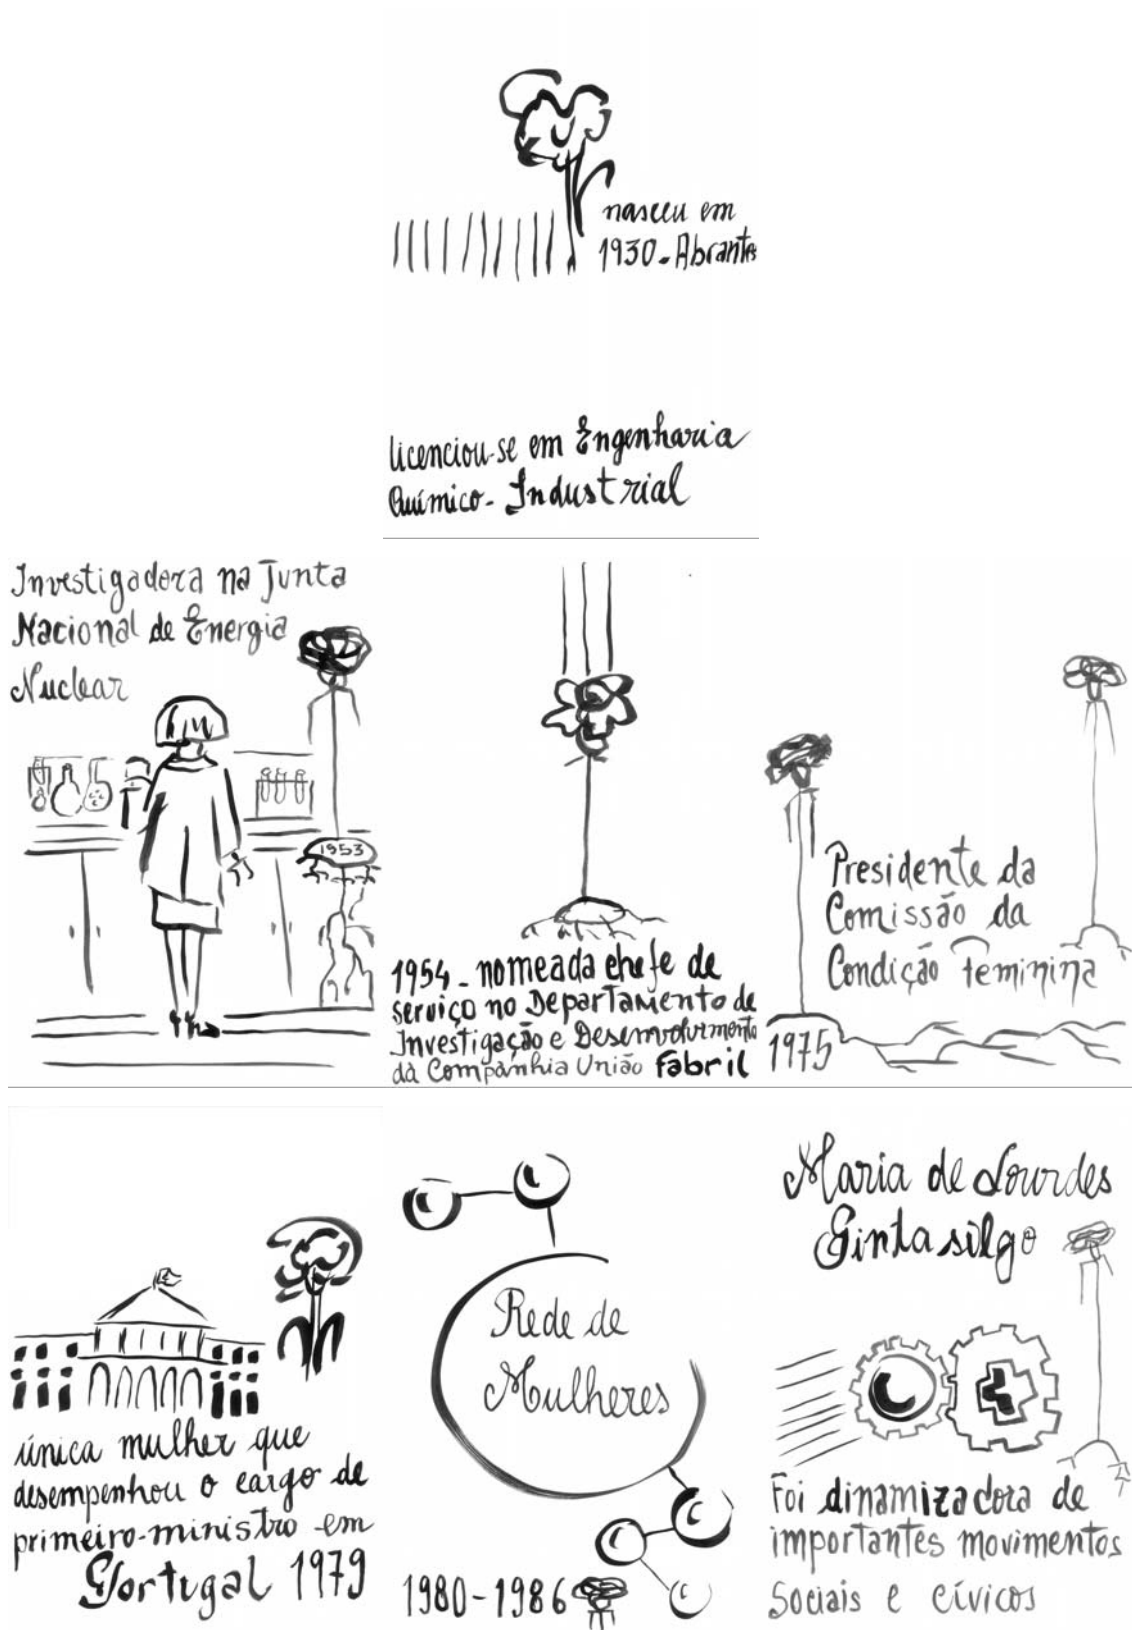 nasceu em
1930-Abrantes
licenciou-se em Engenharia
Químico-Industrial
Investigadora na Junta
Nacional de Energia
Nuclear
1953
1954-nomeada chefe de
serviço no Departamento de
Investigação e Desenvolvimento
da Companhia União Fabril
Presidente da
Comissão da
Condição Feminina
1975
única mulher que
desempenhou o cargo de
primeiro-ministro em
Portugal 1979
Rede de
Mulheres
1980-1986
Maria de Lourdes
Pintasilgo
Foi dinamizadora de
importantes movimentos
Sociais e cívicos